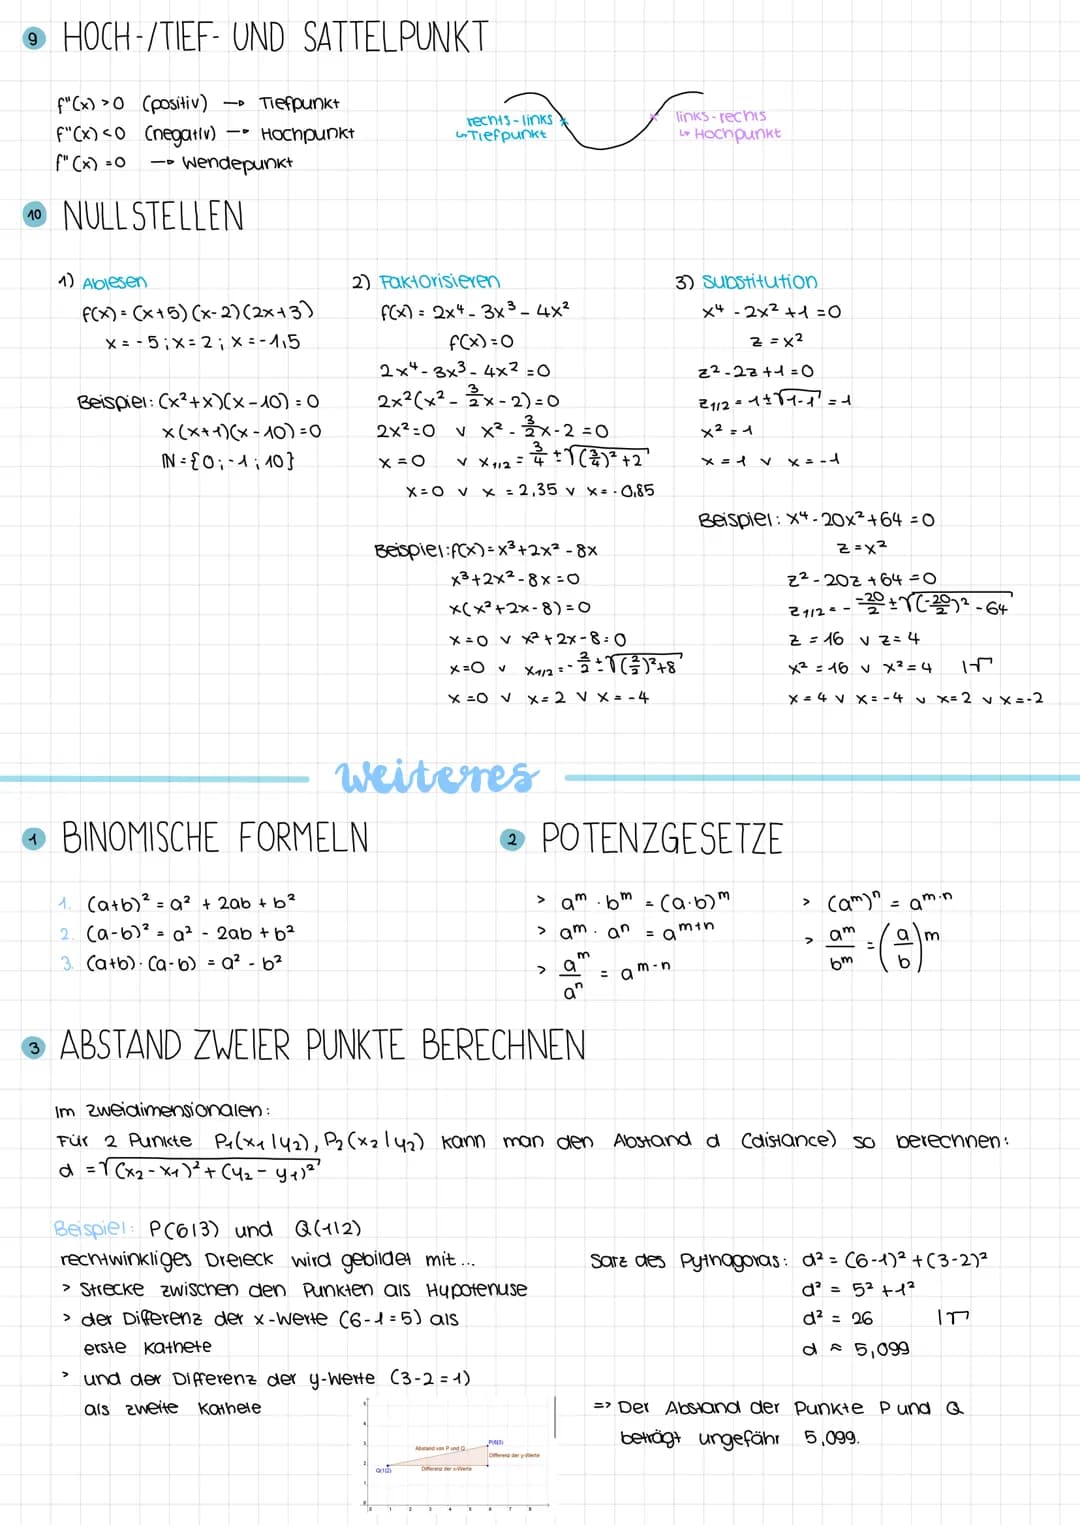 9 HOCH-/TIEF- UND SATTELPUNKT
f"(x) > 0 (positiv) → Tiefpunkt
f"(x) < 0 (negativ) → Hochpunkt
f"(x) = 0 → Wendepunkt
rechts-links
↳ Tiefpunkt
links-rechts
↳ Hochpunkt
10 NULLSTELLEN
1) Ablesen
f(x) = (x+5)(x-2)(2x+3)
x = -5 ; x = 2 ; x = -1,5
Beispiel: (x²+x)(x-10) = 0
x(x+1)(x-10) = 0
IN = {0 ; -1 ; 10}
2) Faktorisieren
f(x) = 2x⁴ - 3x³ - 4x²
f(x) = 0
2x⁴ - 3x³ - 4x² = 0
2x²(x² - 3/2x - 2) = 0
2x² = 0 v x² - 3/2x - 2 = 0
x = 0 v x₁/₂ = 3/4 ± √((3/4)² + 2)
x = 0 v x = 2,35 v x = -0,85
Beispiel: f(x) = x³ + 2x² - 8x
x³ + 2x² - 8x = 0
x(x² + 2x - 8) = 0
x = 0 v x² + 2x - 8 = 0
x = 0 v x₁/₂ = -2/2 ± √((2/2)² + 8)
x = 0 v x = 2 v x = -4
3) Substitution
x⁴ - 2x² + 1 = 0
z = x²
z² - 2z + 1 = 0
z₁/₂ = 1 ± √(1-1) = 1
x² = 1
x = 1 v x = -1
Beispiel: x⁴ - 20x² + 64 = 0
z = x²
z² - 20z + 64 = 0
z₁/₂ = - -20/2 ± √((-20/2)² - 64)
z = 16 v z = 4
x² = 16 v x² = 4 |√
x = 4 v x = -4 v x = 2 v x = -2
weiteres
1 BINOMISCHE FORMELN
1. (a+b)² = a² + 2ab + b²
2. (a-b)² = a² - 2ab + b²
3. (a+b)·(a-b) = a² - b²
2 POTENZGESETZE
> aᵐ · bᵐ = (a·b)ᵐ
> aᵐ · aⁿ = aᵐ⁺ⁿ
> aᵐ/aⁿ = aᵐ⁻ⁿ
> (aᵐ)ⁿ = aᵐ·ⁿ
> aᵐ/bᵐ = (a/b)ᵐ
3 ABSTAND ZWEIER PUNKTE BERECHNEN
Im zweidimensionalen:
Für 2 Punkte P₁(x₁|y₂), P₂(x₂|y₂) kann man den Abstand d (distance) so berechnen:
d = √((x₂-x₁)² + (y₂-y₁)²)
Beispiel: P(6|3) und Q(1|2)
rechtwinkliges Dreieck wird gebildet mit...
> Strecke zwischen den Punkten als Hypotenuse
> der Differenz der x-Werte (6-1=5) als
erste Kathete
> und der Differenz der y-Werte (3-2=1)
als zweite Kathete
Satz des Pythagoras: d² = (6-1)² + (3-2)²
d² = 5² + 1²
d² = 26 |√
d ≈ 5,099
=> Der Abstand der Punkte P und Q
beträgt ungefähr 5,099.
Abstand von P und Q
P(6|3)
Differenz der y-Werte
Q(1|2)
Differenz der x-Werte
5
4
3
2
1
0
0 1 2 3 4 5 6 7 8